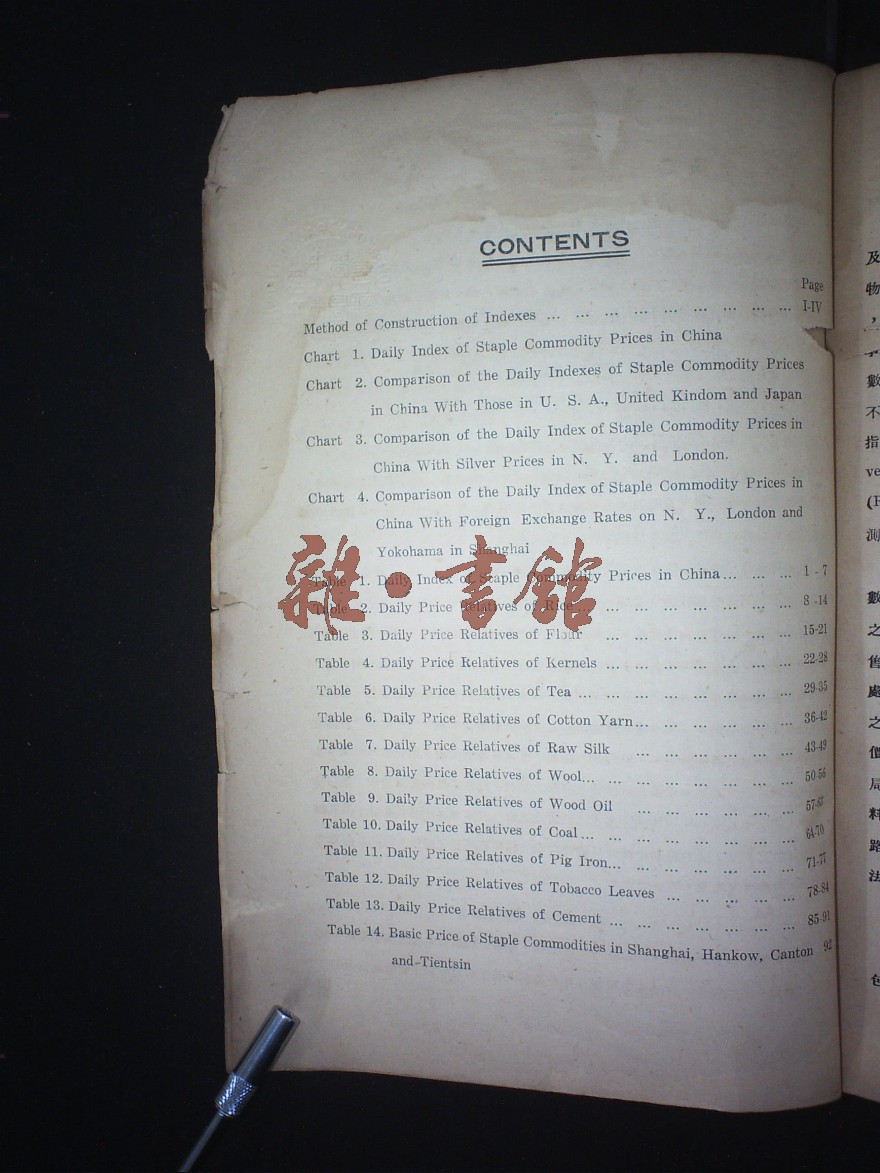 CONTENTS
Page
Method of Construction of Indexes ... ... ... ... ... ... ... ... ... I-IV
Chart 1. Daily Index of Staple Commodity Prices in China
Chart 2. Comparison of the Daily Indexes of Staple Commodity Prices
in China With Those in U. S. A., United Kindom and Japan
Chart 3. Comparison of the Daily Index of Staple Commodity Prices in
China With Silver Prices in N. Y. and London.
Chart 4. Comparison of the Daily Index of Staple Commodity Prices in
China With Foreign Exchange Rates on N. Y., London and
Yokohama in Shanghai
Table 1. Daily Index of Staple Commodity Prices in China... ... ... 1-7
Table 2. Daily Price Relatives of Rice... ... ... ... ... ... ... ... 8-14
Table 3. Daily Price Relatives of Flour ... ... ... ... ... ... ... 15-21
Table 4. Daily Price Relatives of Kernels ... ... ... ... ... ... ... 22-28
Table 5. Daily Price Relatives of Tea ... ... ... ... ... ... ... ... 29-35
Table 6. Daily Price Relatives of Cotton Yarn... ... ... ... ... ... 36-42
Table 7. Daily Price Relatives of Raw Silk ... ... ... ... ... ... 43-49
Table 8. Daily Price Relatives of Wool... ... ... ... ... ... ... ... 50-56
Table 9. Daily Price Relatives of Wood Oil ... ... ... ... ... ...
Table 10. Daily Price Relatives of Coal... ... ... ... ... ... ... ... 64-70
Table 11. Daily Price Relatives of Pig Iron... ... ... ... ... ... ... 71-77
Table 12. Daily Price Relatives of Tobacco Leaves ... ... ... ... ... 78-84
Table 13. Daily Price Relatives of Cement ... ... ... ... ... ... ... 85-91
Table 14. Basic Price of Staple Commodities in Shanghai, Hankow, Canton 92
and-Tientsin
雜·書館
及
物
，
數
不
指
ve
測
數
之
售
處
之
價
局
料
路
法